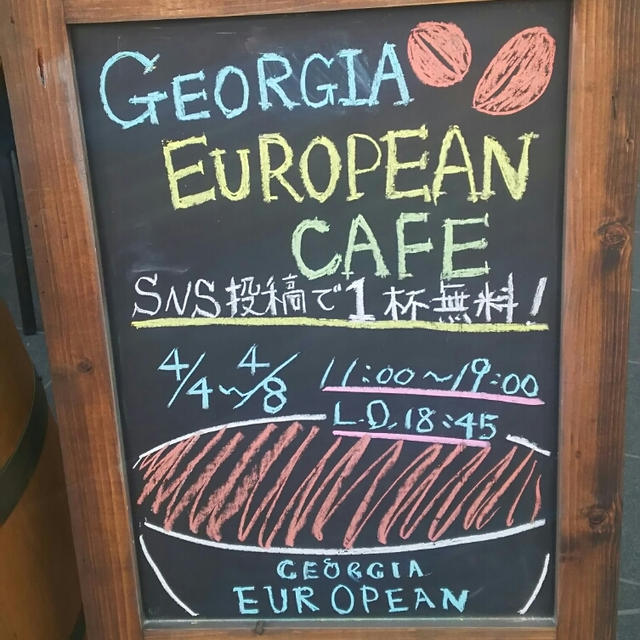 GEORGIA
EUROPEAN
CAFE
SNS投稿で1杯無料!
4/4~4/8 11:00~19:00
L.O.18:45
GEORGIA
EUROPEAN